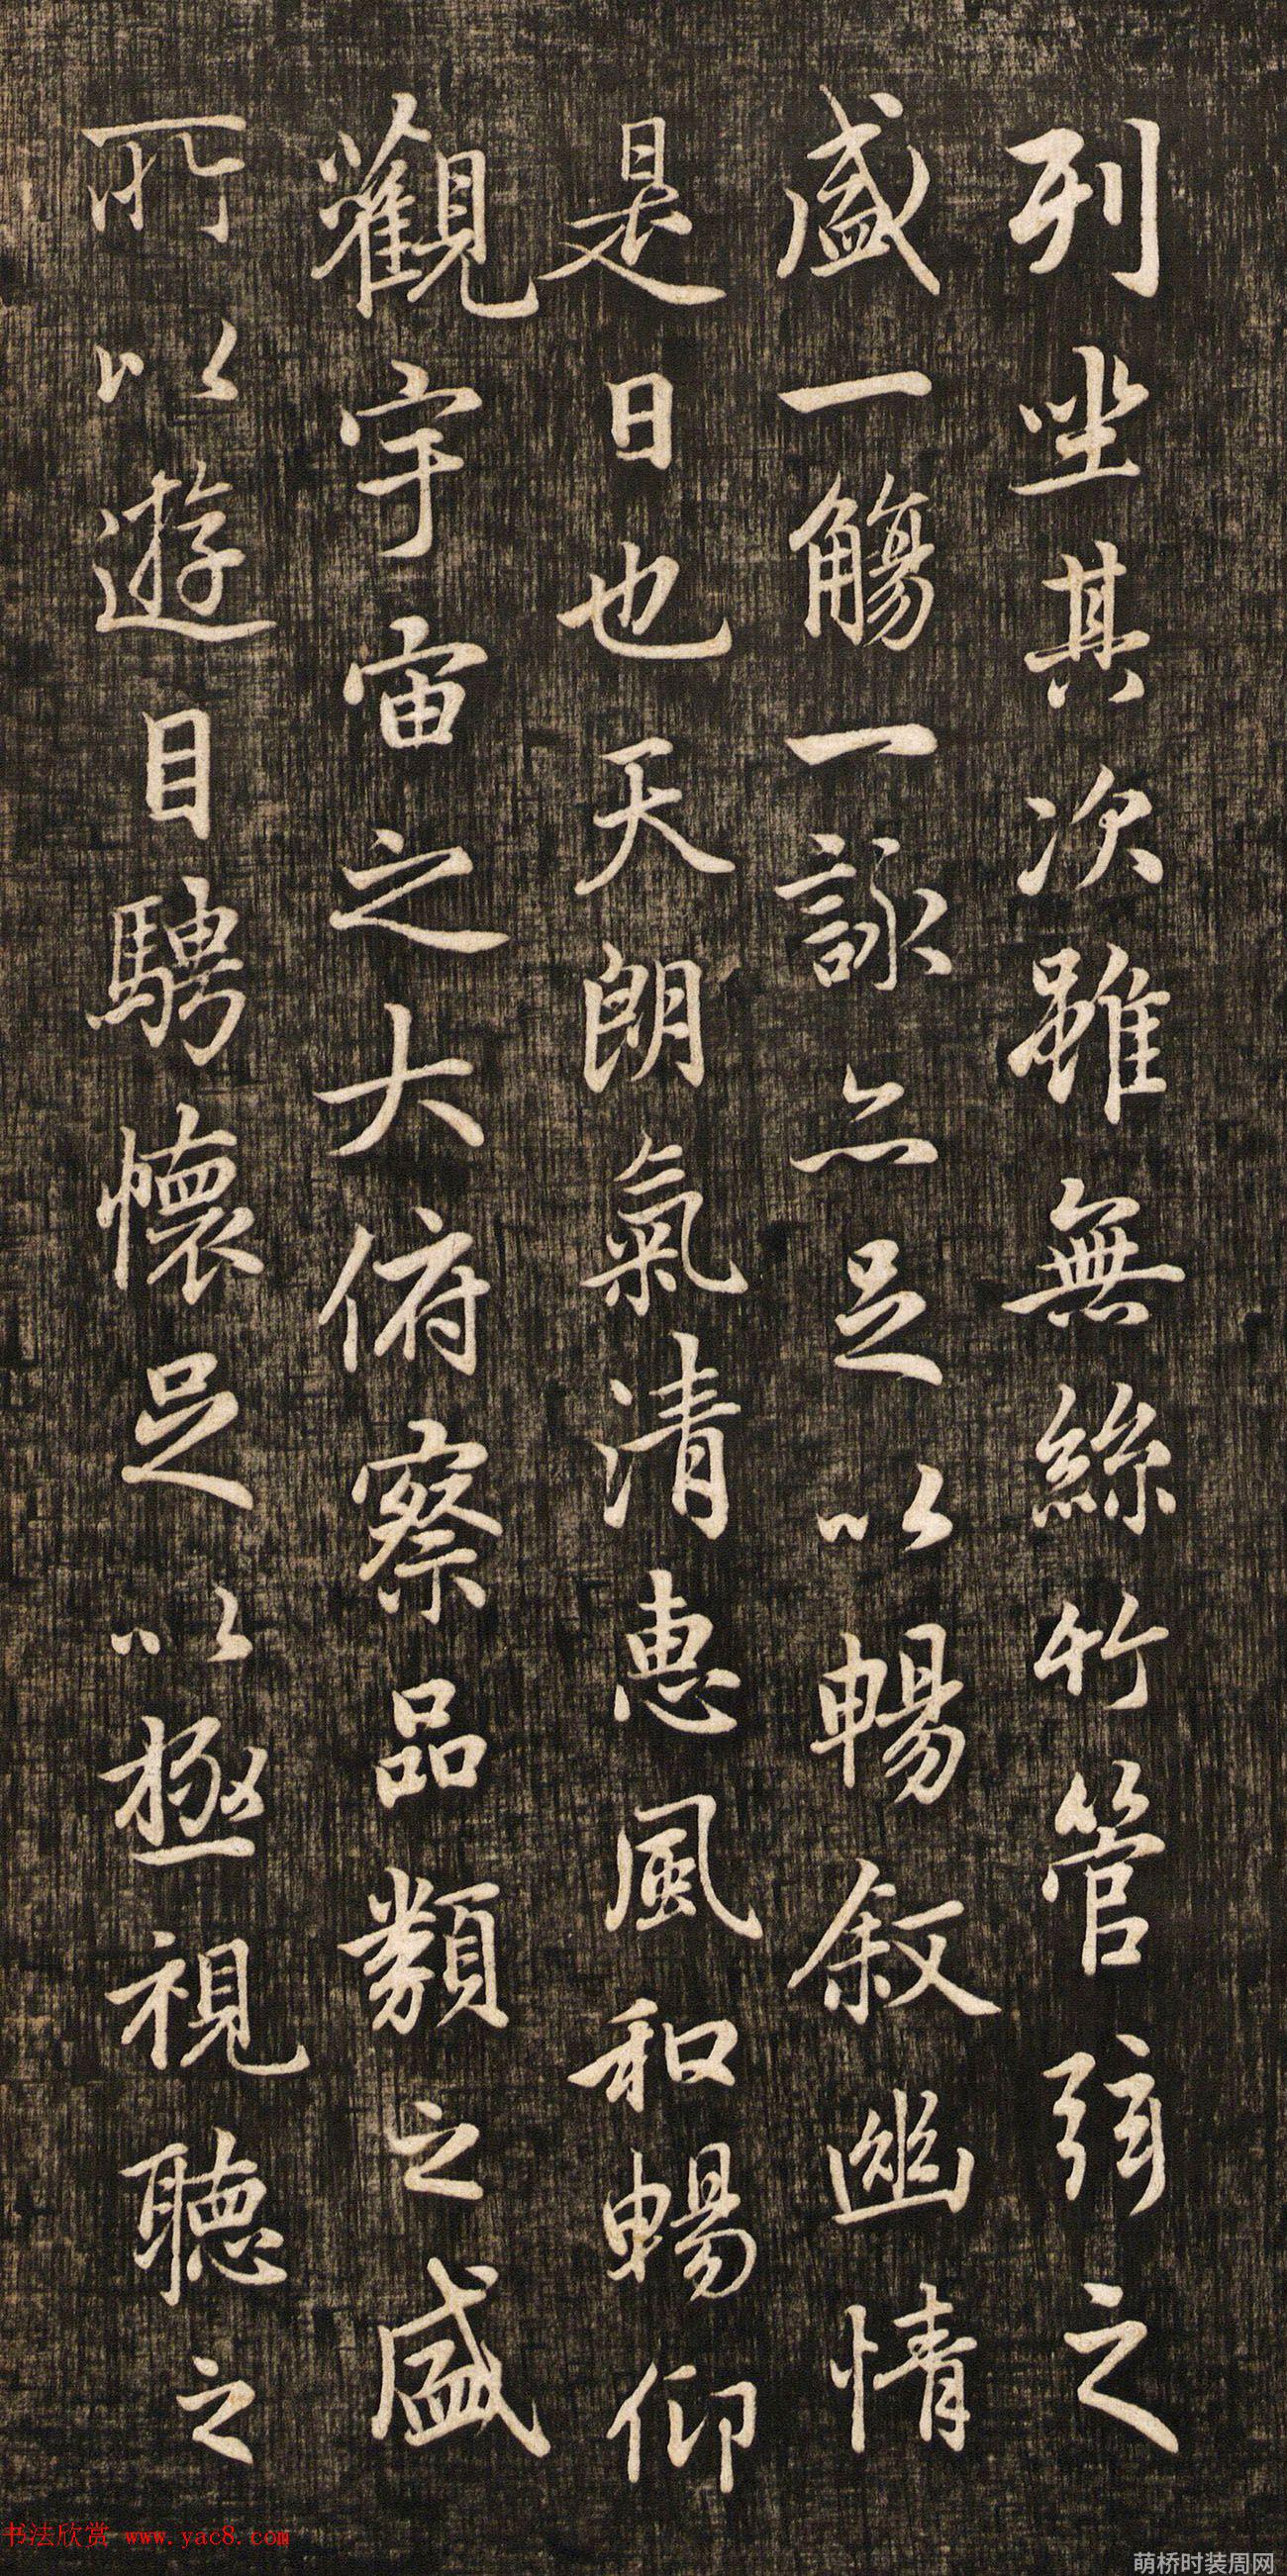 列坐其次雖無絲竹管弦之
盛一觴一詠亦足以暢敘幽情
是日也天朗氣清惠風和暢仰
觀宇宙之大俯察品類之盛
所以遊目騁懷足以極視聽之
书法欣赏 www.yac8.com
萌桥时装周网